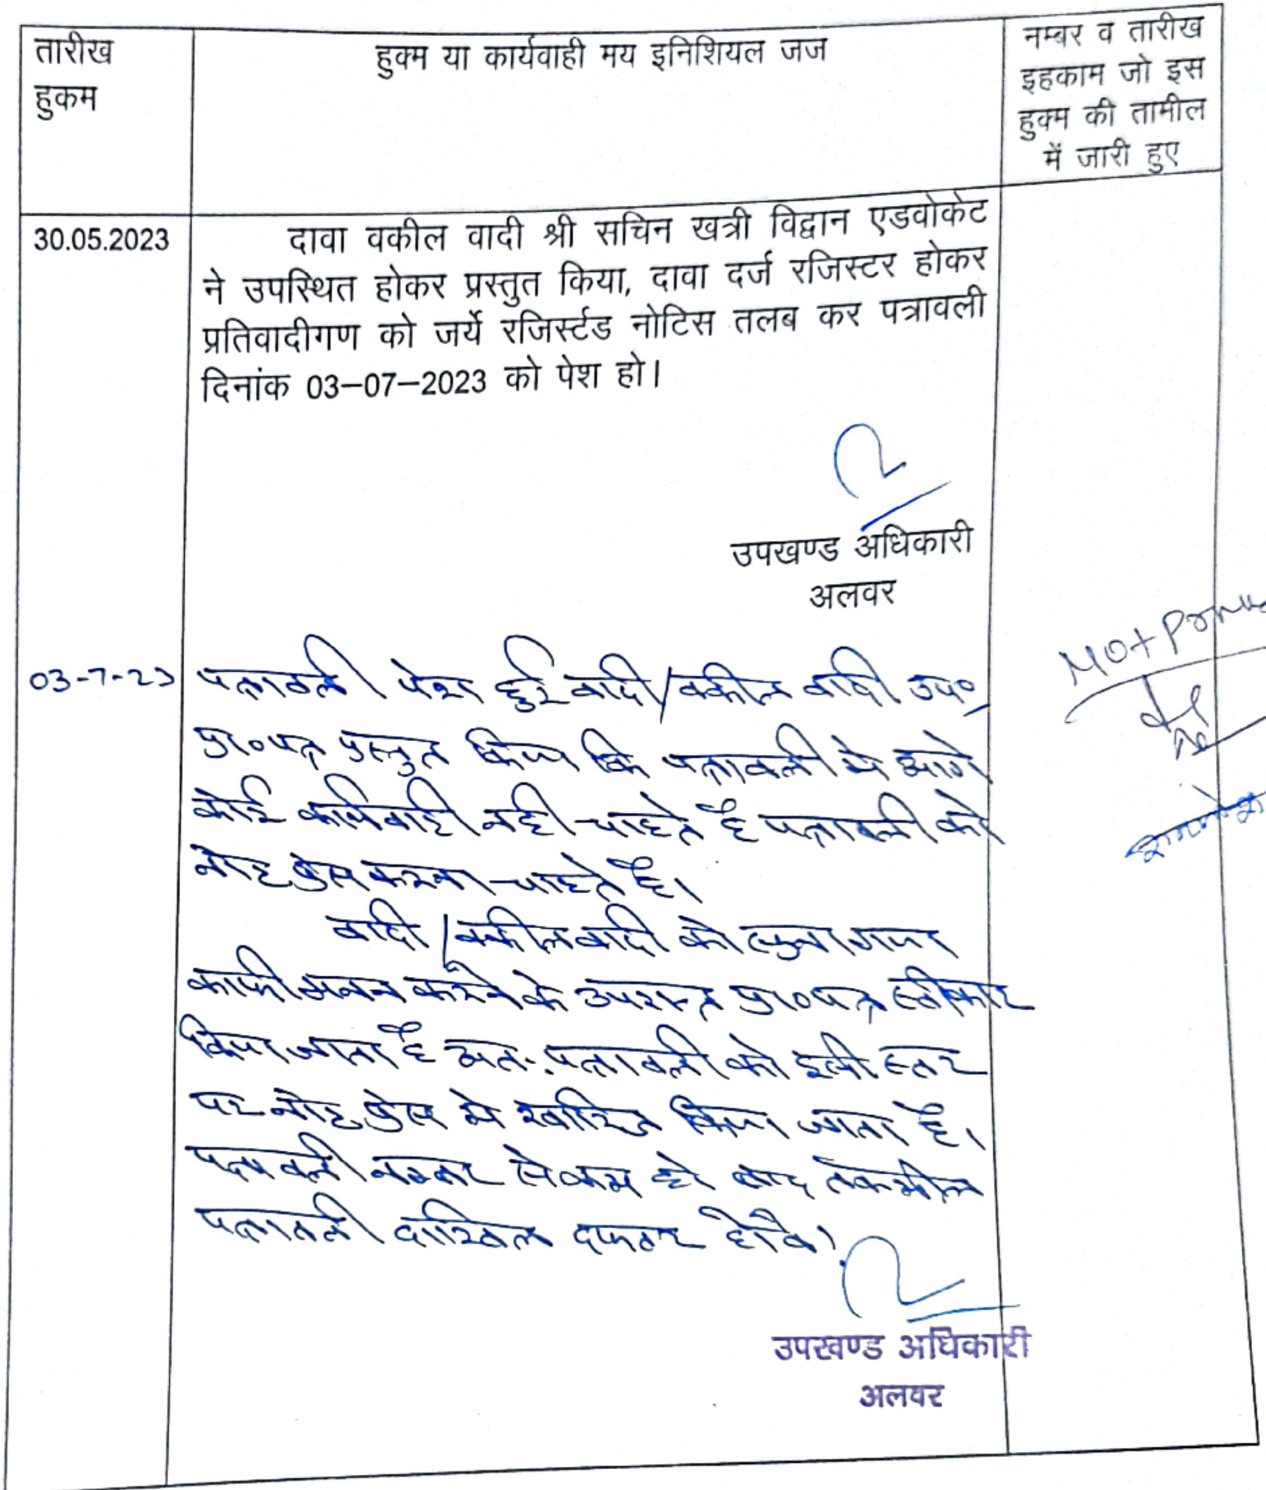 तारीख
हुकम
हुक्म या कार्यवाही मय इनिशियल जज
नम्बर व तारीख
इहकाम जो इस
हुक्म की तामील
में जारी हुए
30.05.2023
दावा वकील वादी श्री सचिन खत्री विद्वान एडवोकेट
ने उपस्थित होकर प्रस्तुत किया, दावा दर्ज रजिस्टर होकर
प्रतिवादीगण को जर्ये रजिर्स्टड नोटिस तलब कर पत्रावली
दिनांक 03–07–2023 को पेश हो।
उपखण्ड अधिकारी
अलवर
03-7-23
पत्रावली पेश हुई वादी/वकील वादी उप०
प्रा०पत्र प्रस्तुत किया कि पत्रावली मे आगे
कोई कार्यवाही नही चाहते है पत्रावली को
नोट प्रेस करना चाहते है।
वादी/वकील वादी को सुना गया
काफी मनन करने के उपरान्त प्रा०पत्र स्वीकार
किया जाता है अतः पत्रावली को इसी स्तर
पर नोट प्रेस मे खारिज किया जाता है।
पत्रावली नम्बर से कम हो बाद तकमील
पत्रावली दाखिल दफतर होवे।
Not Press
उपखण्ड अधिकारी
अलवर